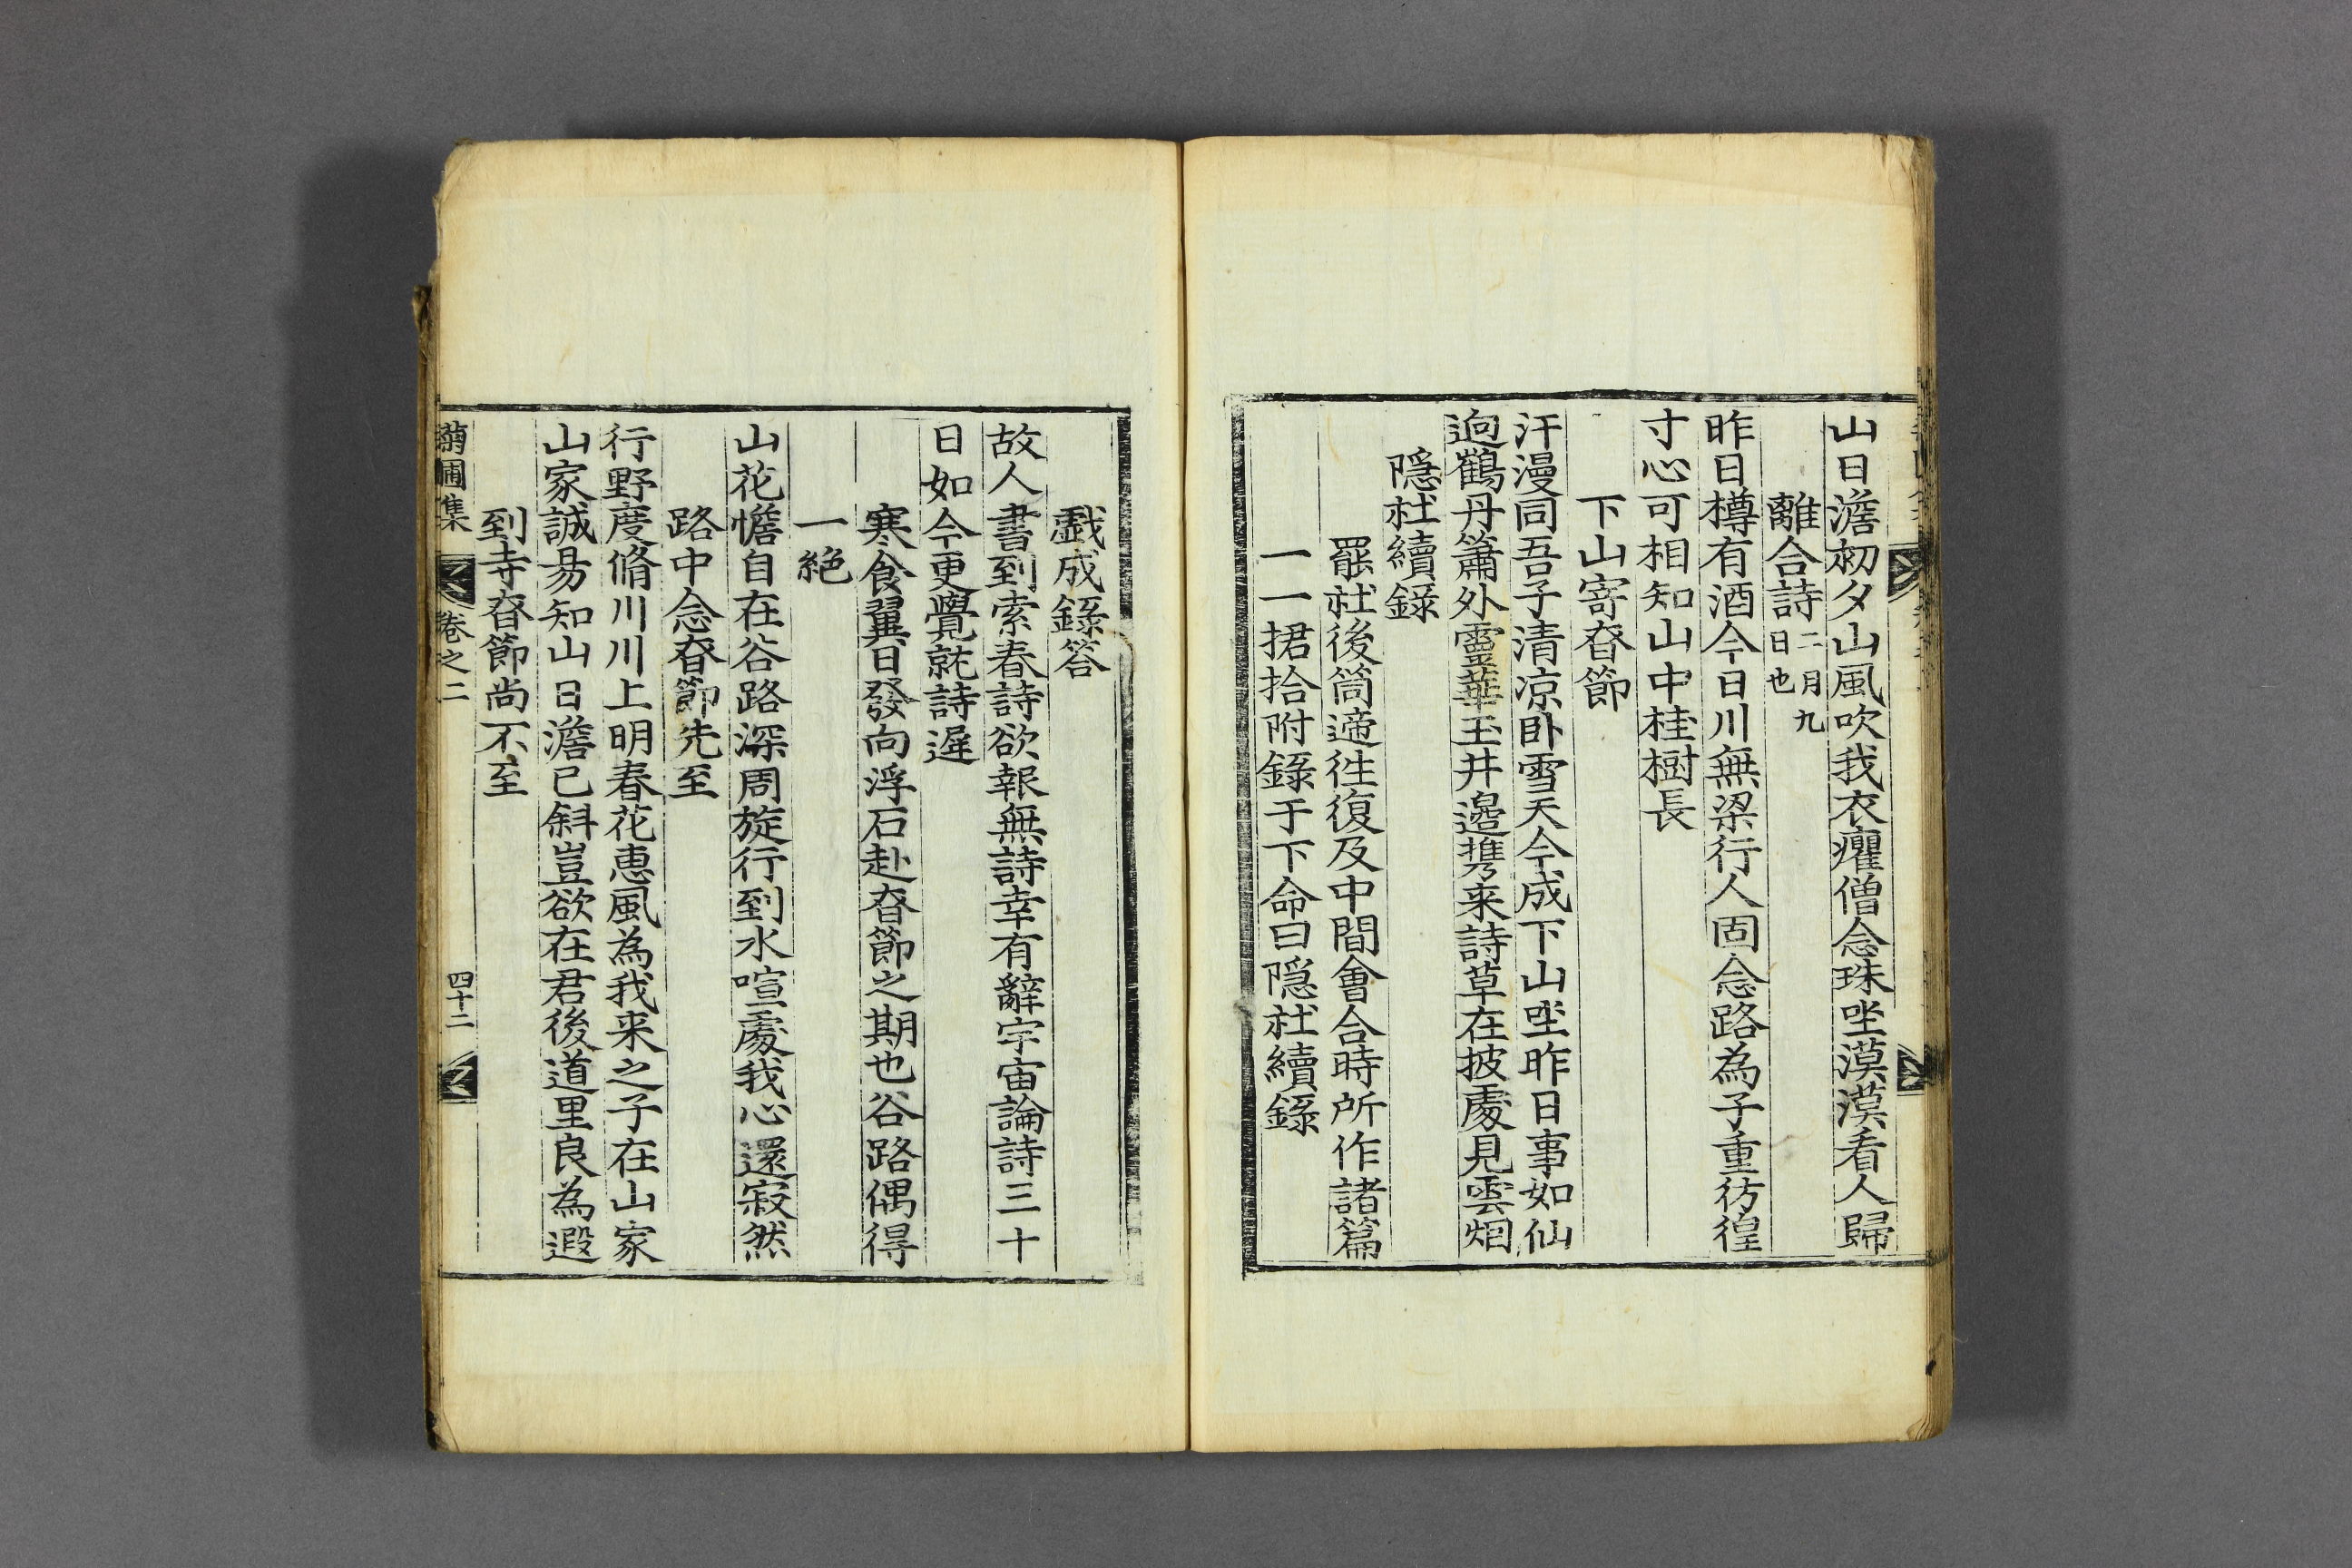 山日澹初夕山風吹我衣癯僧念珠坐漠漠看人歸
離合詩二月九日也
昨日樽有酒今日川無梁行人固念路為子重彷徨
寸心可相知山中桂樹長
下山寄昚節
汗漫同吾子清凉卧雪天今成下山坐昨日事如仙
逈鶴丹簫外靈華玉井邉携来詩草在披處見雲烟
隠社續錄
罷社後筒遞徃復及中間會合時所作諸篇
一一捃拾附錄于下命曰隠社續錄
戱成錄答
故人書到索春詩欲報無詩幸有辭宇宙論詩三十
日如今更覺就詩遅
寒食翼日發向浮石赴昚節之期也谷路偶得
一絶
山花憺自在谷路深周旋行到水喧處我心還寂然
路中念昚節先至
行野度脩川川上明春花惠風為我来之子在山家
山家誠昜知山日澹已斜豈欲在君後道里良為遐
到寺昚節尚不至
菊圃集
卷之二
四十二